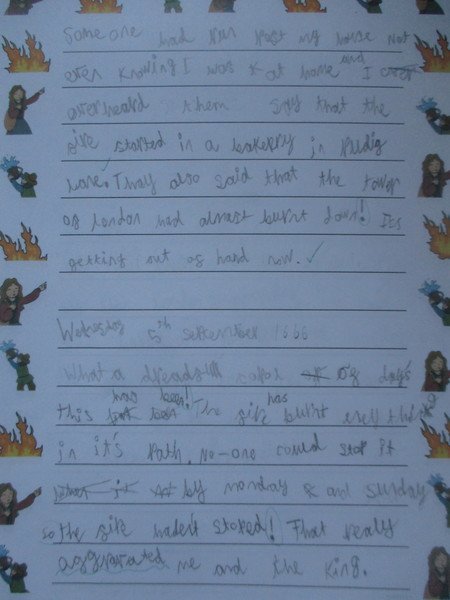 Some one had Run Past my house not
even knowing I was at home and I
overheard them say that the
fire started in a bakerry in Puddig
lane. They also said that the tower
of london had almast burnt down! It's
getting out of hand now.
Wednesday 5th September 1666
What a dreadfull of days
this has been! The fire has burnt
in it's Path. No-one could stop it
by monday and sunday
so the fire hadent stoped! That really
aggravated me and the King.